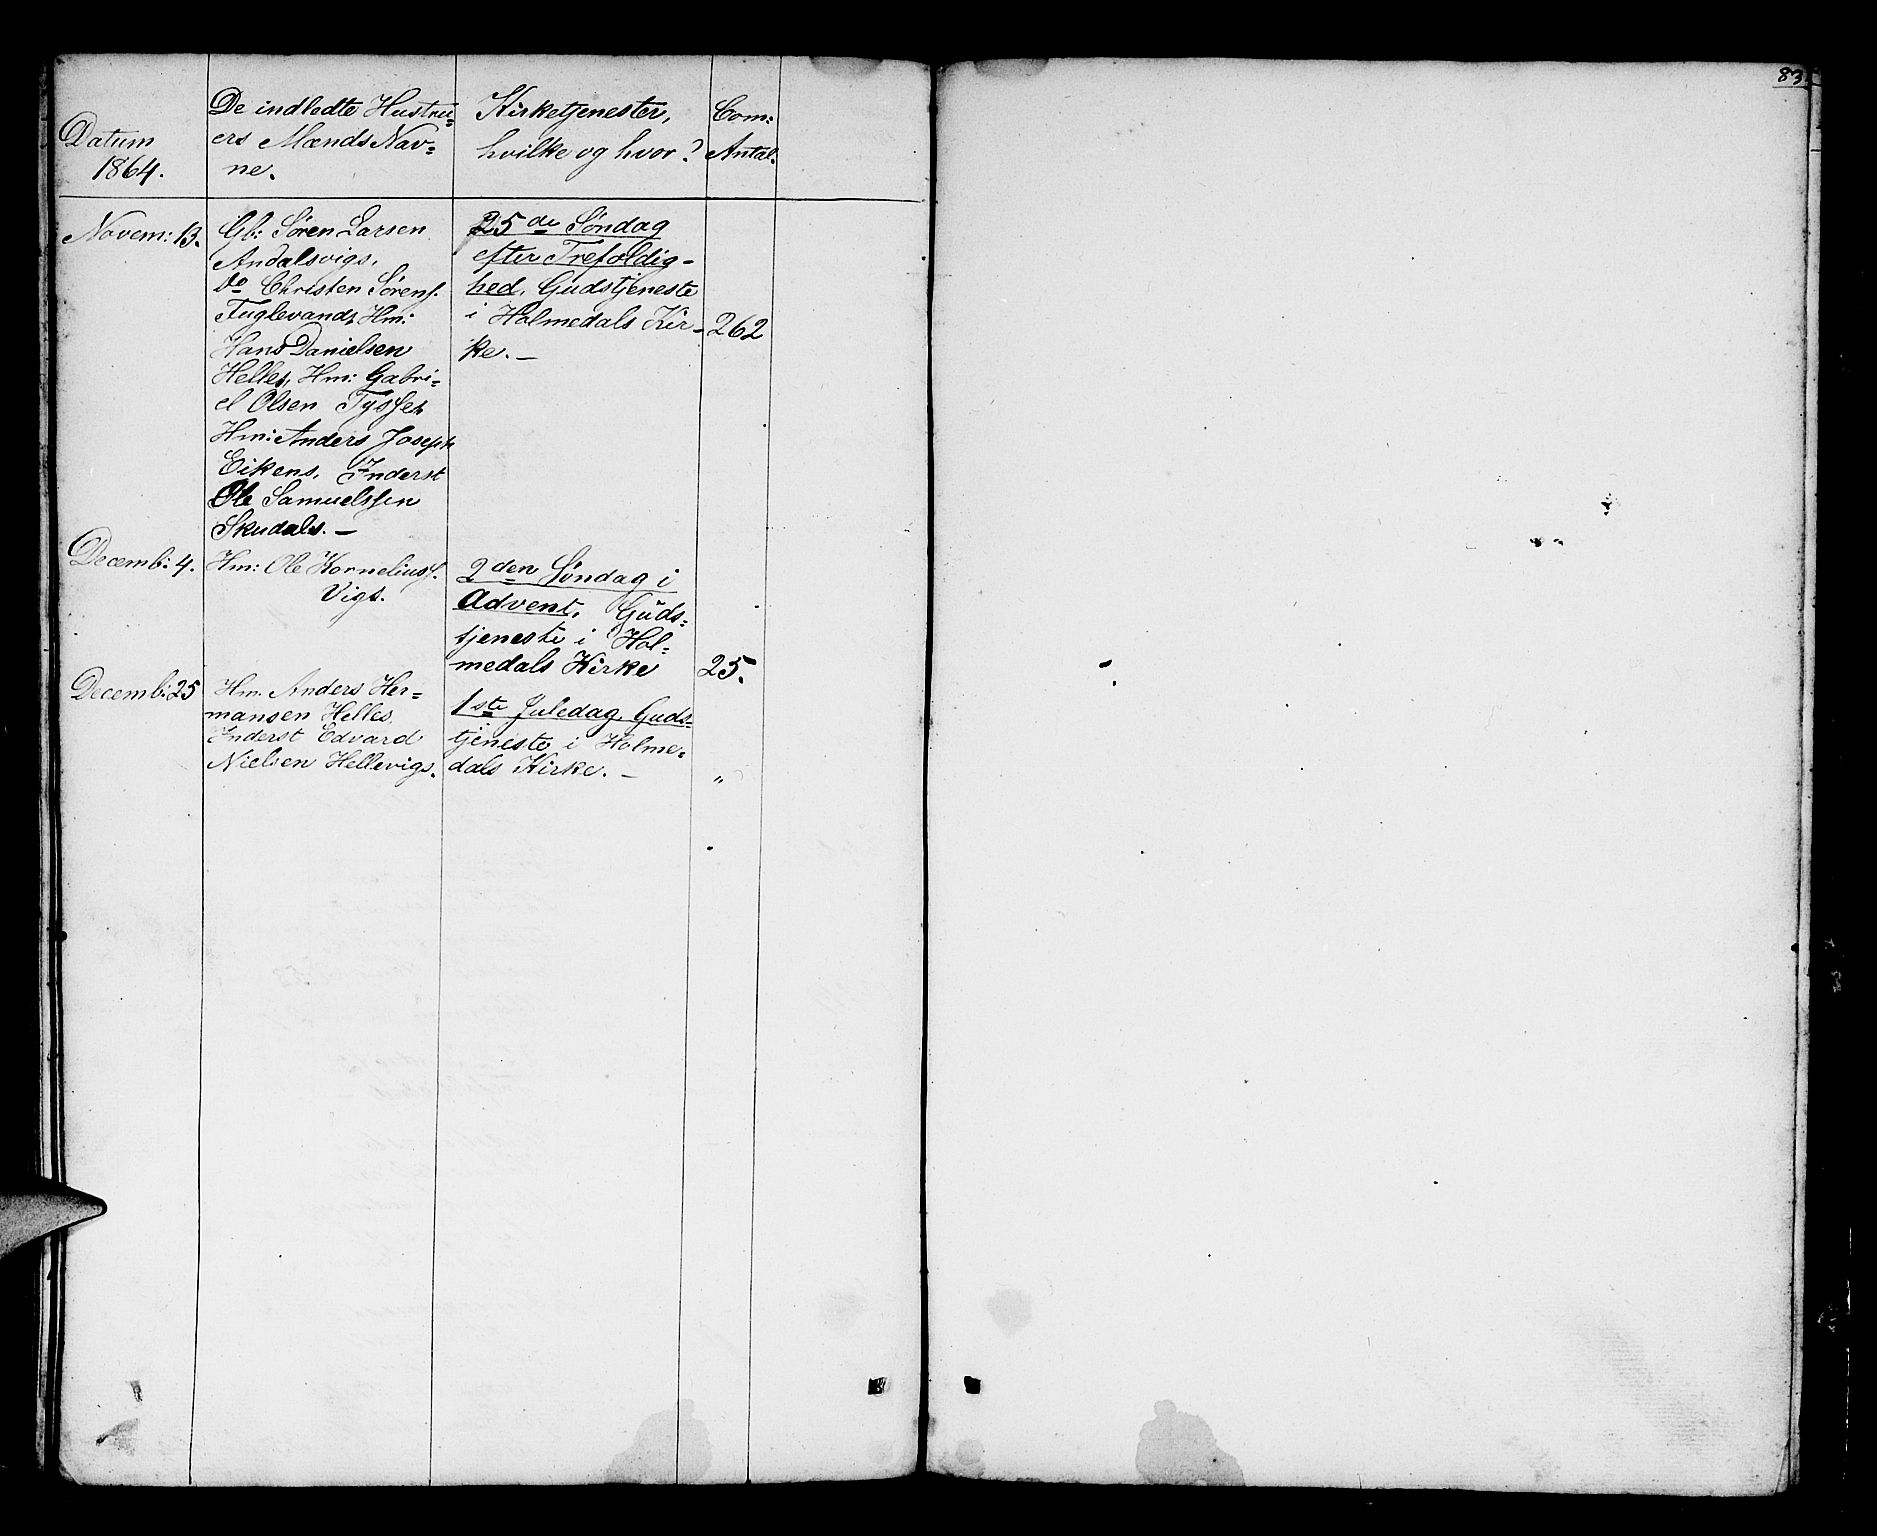 83
Datum
1864.
De indledte Hustru=
ers Mænds Nav=
ne.
Kirketjenester,
hvilke og hvor?
Com:
Antal.
Novem: 13.
Gb: Søren Larsen
Andalsvigs,
Do Christen Sørens.
Fuglevands, Hm:
Hans Danielsen
Helles, Hm: Gabri=
el Olsen Tysses
Hm: Anders Joseph
Eikens, Inderst
Ole Samuelssen
Skudals. —
25de Søndag
efter Trefoldig=
hed. Gudstjeneste
i Holmedals Kir=
ke. —
262
Decemb: 4.
Hm: Ole Kornelius.
Vigs.
2den Søndag i
Advent. Guds=
tjeneste i Hol=
medals Kirke
25.
Decemb: 25
Hm. Anders Her=
mansen Helles,
Inderst Edvard
Nielsen Hellevigs.
1ste Juledag. Guds=
tjeneste i Holme=
dals Kirke. —
"